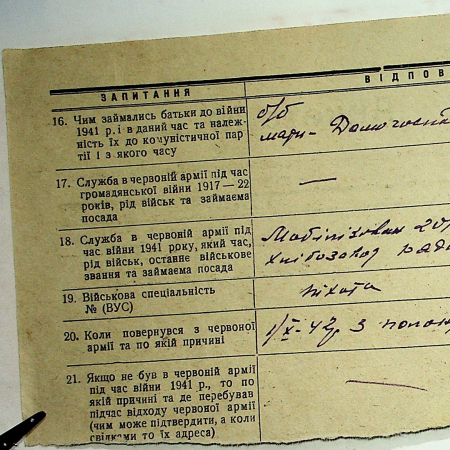 ЗАПИТАННЯ
ВІДПОВ
16. Чим займались батьки до війни
1941 р. і в даний час та належ-
ність їх до комуністичної пар
тії і з якого часу
б/б
мати - Домогоспод
17. Служба в червоній армії під час
громадянської війни 1917—22
років, рід військ та займаєма
посада
—
18. Служба в червоній армії під
час війни 1941 року, який час,
рід військ, останнє військове
звання та займаєма посада
Мобілізован
19. Військова спеціальність
№ (ВУС)
піхота
20. Коли повернувся з червоної
армії та по якій причині
1/X-42р. з полону
21. Якщо не був в червоній армії
під час війни 1941 р., то по
якій причині та де перебував
підчас відходу червоної армії
(чим може підтвердити, а коли
свідками то їх адреса)
—